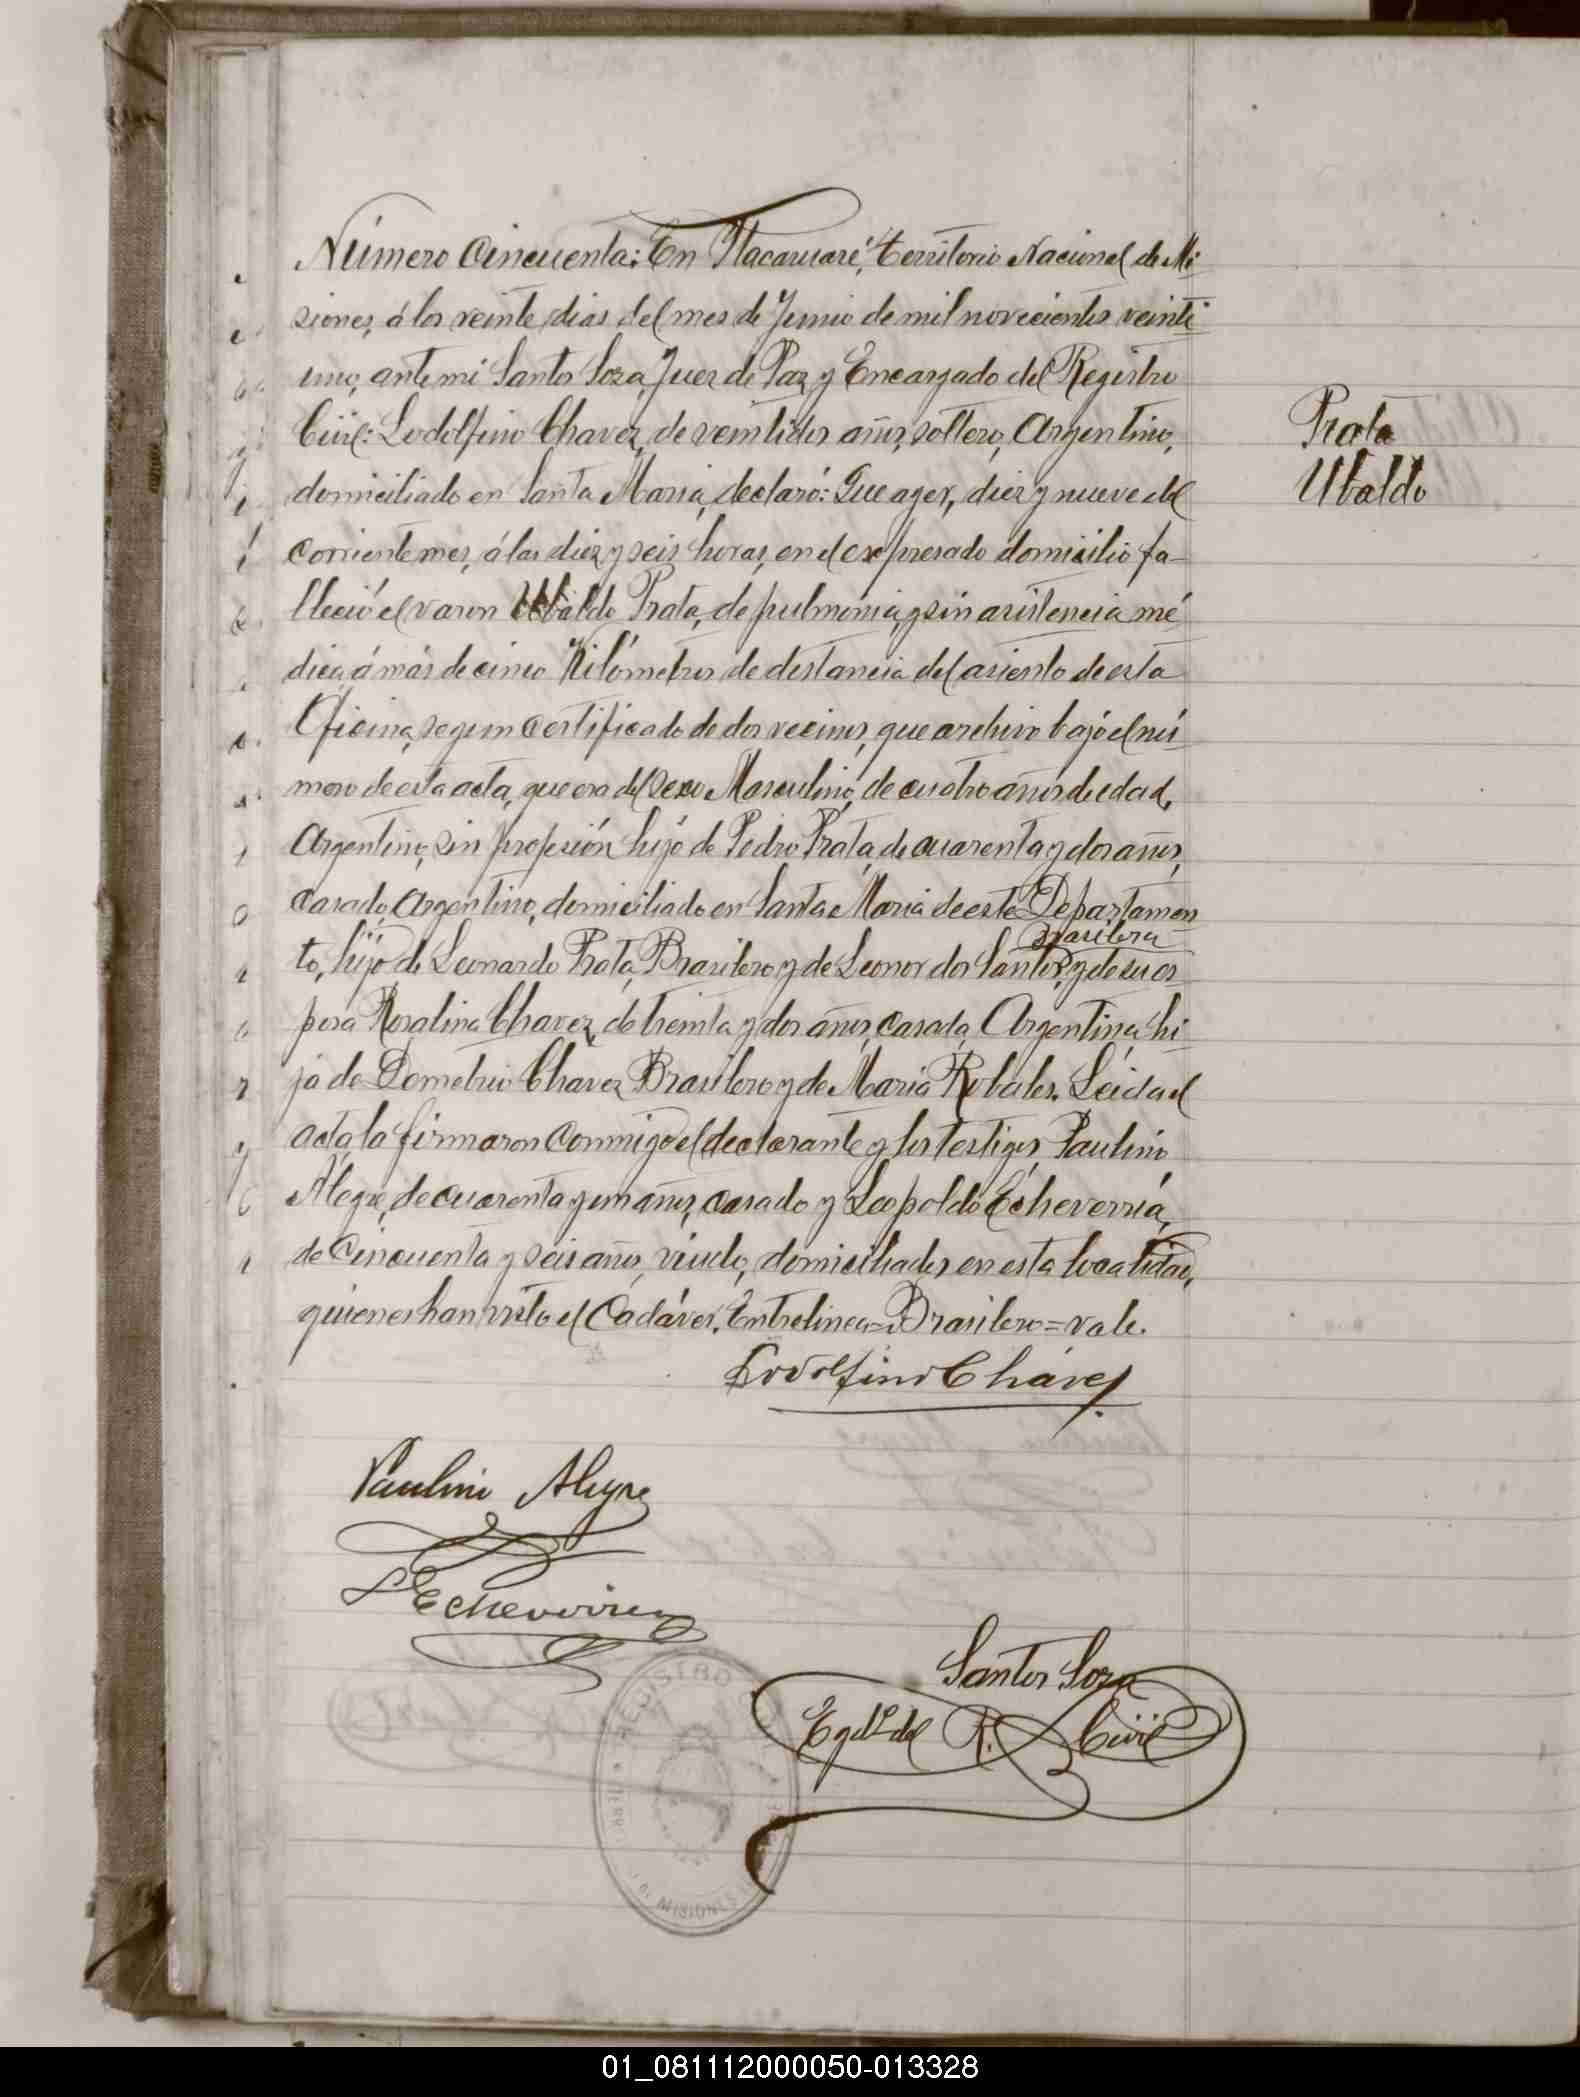 Número Cincuenta: En Itacaruaré, Territorio Nacional de Mi
siones, á los veinte dias del mes de Junio de mil novecientos veinti
uno, ante mi Santos Soza, Juez de Paz y Encargado del Registro
Civil: Lodolfino Chavez, de veintidos años, soltero, Argentino,
domiciliado en Santa Maria, declaró: Que ayer, diez y nueve del
corriente mes, á las diez y seis horas, en el expresado domicilio fa-
lleció el varon Ubaldo Prata, de pulmonia, y sin asistencia mé
dica, á más de cinco Kilómetros de distancia del asiento de esta
Oficina, segun certificado de dos vecinos, que archivo bajo el nú
mero de esta acta, que era del Sexo Masculino, de cuatro años de edad,
Argentino, sin profesión, hijo de Pedro Prata, de cuarenta y dos años,
casado, Argentino, domiciliado en Santa Maria de este Departamen
Brasilera
to, hijo de Leonardo Prata, Brasilero y de Leonor dos Santos, y de su es
posa Rosalina Chavez, de treinta y dos años, casada, Argentina, hi
ja de Demetrio Chavez Brasilero y de Maria Robales. Leida el
acta, la firmaron conmigo el declarante y los testigos Paulino
Alegre, de cuarenta y un años, casado y Leopoldo Echeverria,
de Cincuenta y seis años, viudo, domiciliados en esta localidad,
quienes han visto el Cadáver. Entrelinea=Brasilero=vale.
Lodolfino Cháves
Paulino Alegre
L Echeverria
Santos Soza
Egdo. del R. Civil
Prata
Ubaldo
REGISTRO
MISIONES
01_081112000050-013328